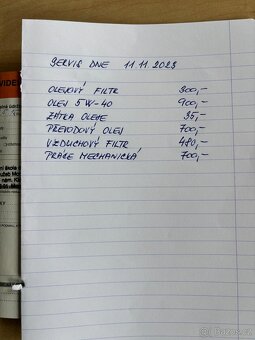 SERVIS DNE 11.11 2023
OLEJOVÝ FILTR 300,-
OLEJ 5W-40 900,-
ZÁTKA OLEJE 35,-
PŘEVODOVÝ OLEJ 700,-
VZDUCHOVÝ FILTR 480,-
PRÁCE MECHANICKÁ 700,-
Bazos.cz